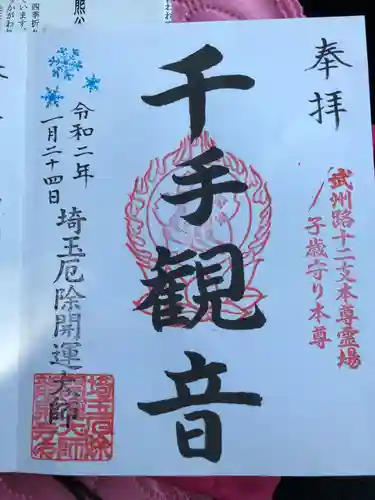 奉拝
武州路十二支本尊霊場
子歳守り本尊
千手観音
令和二年
一月二十四日
埼玉厄除開運大師